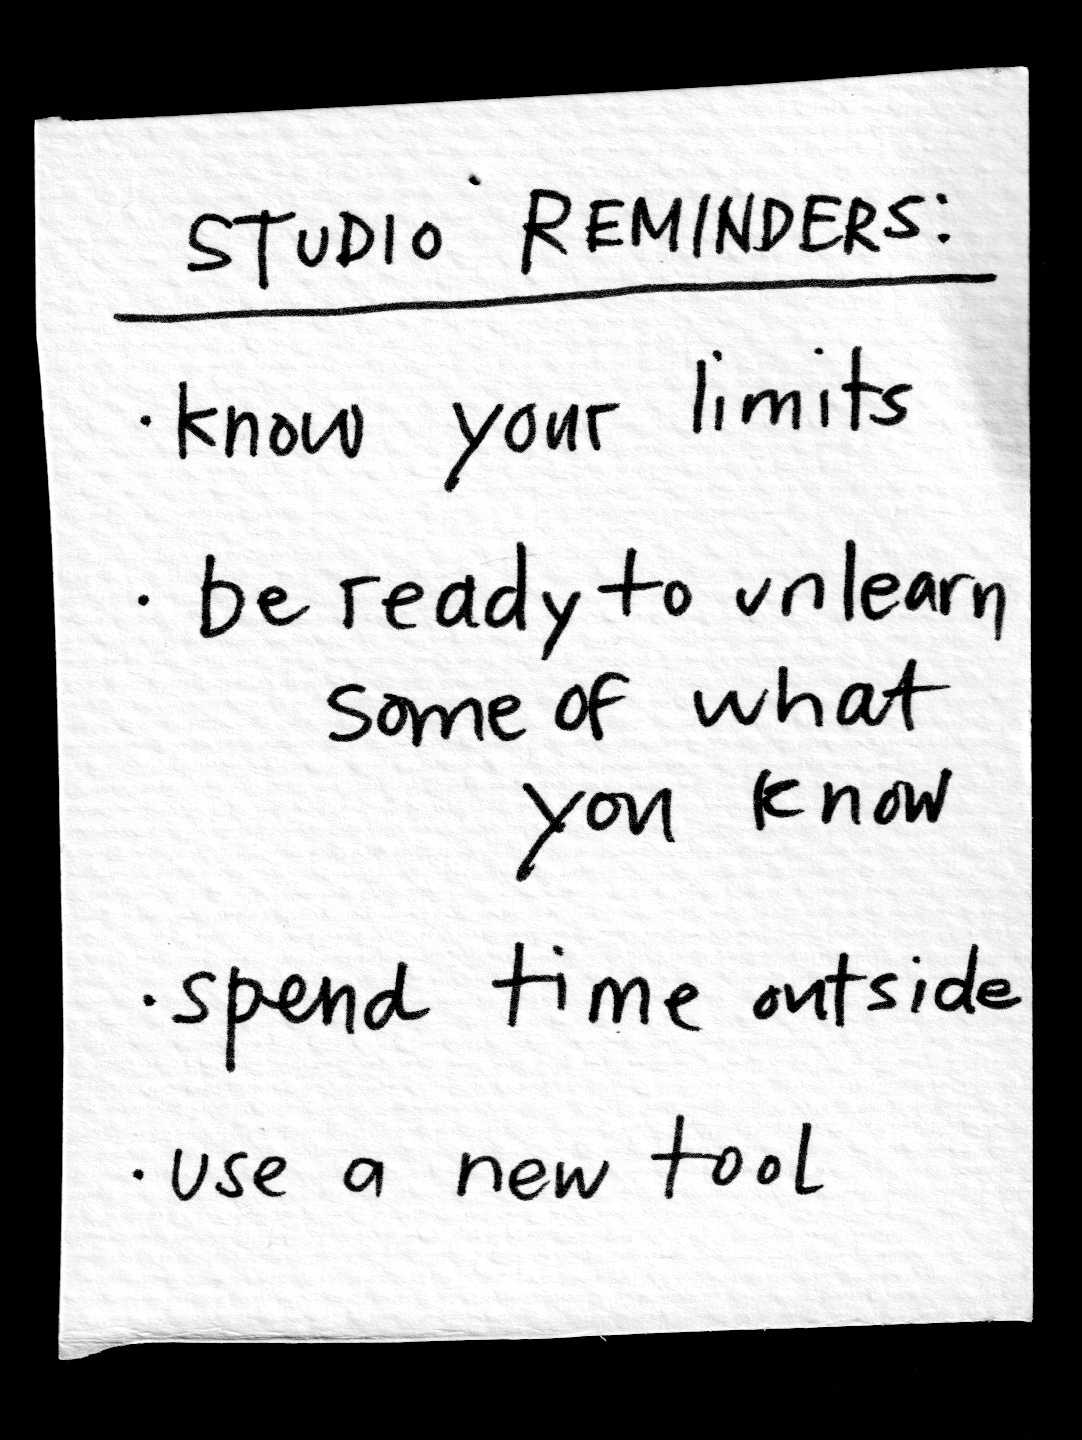 STUDIO REMINDERS:
· know your limits
· be ready to unlearn
some of what
you know
· spend time outside
· use a new tool